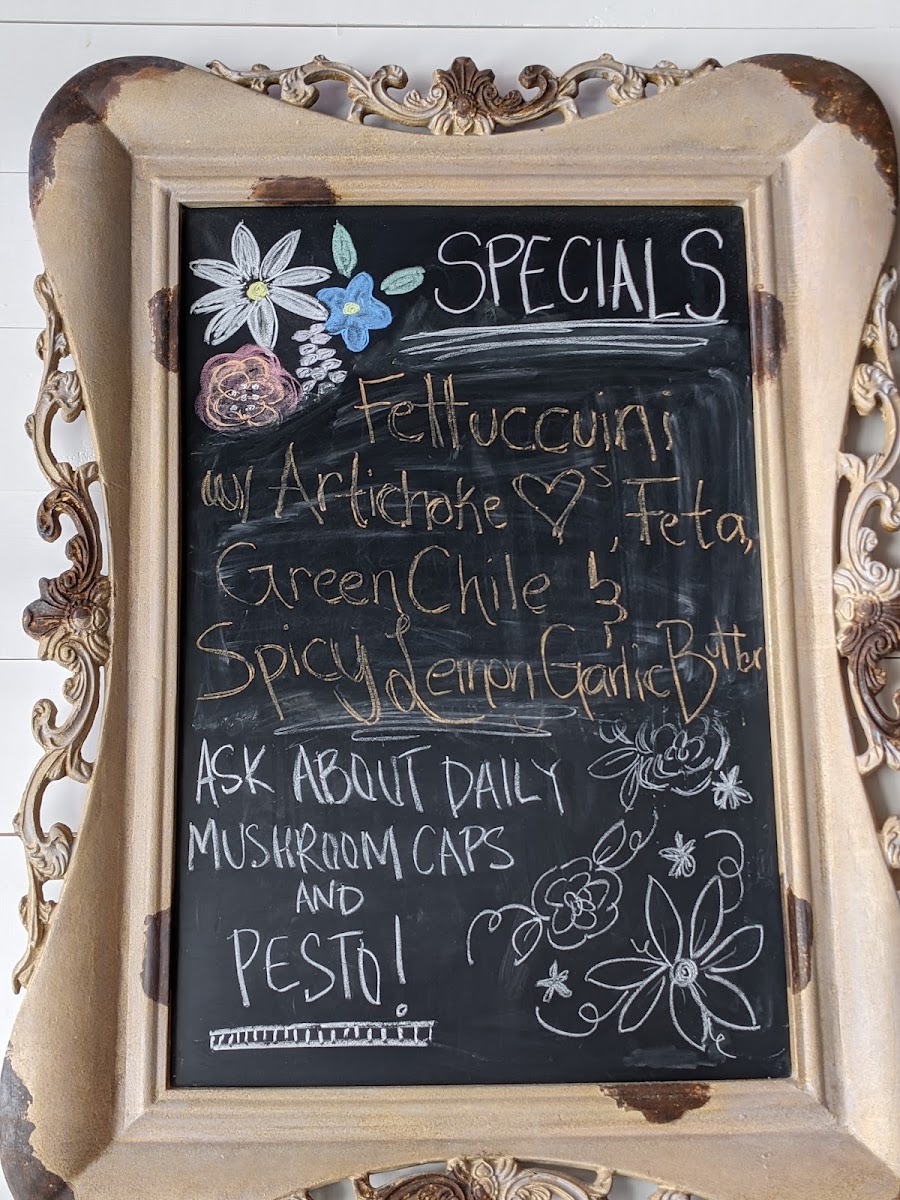 SPECIALS
Fettuccuini
w/ Artichoke ♡s, Feta,
Green Chile &
Spicy Lemon Garlic Butter
ASK ABOUT DAILY
MUSHROOM CAPS
AND
PESTO!